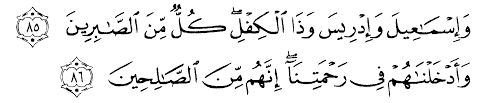 وَإِسْمَٰعِيلَ وَإِدْرِيسَ وَذَا ٱلْكِفْلِ ۖ كُلٌّ مِّنَ ٱلصَّٰبِرِينَ ٨٥
وَأَدْخَلْنَٰهُمْ فِى رَحْمَتِنَآ ۖ إِنَّهُم مِّنَ ٱلصَّٰلِحِينَ ٨٦